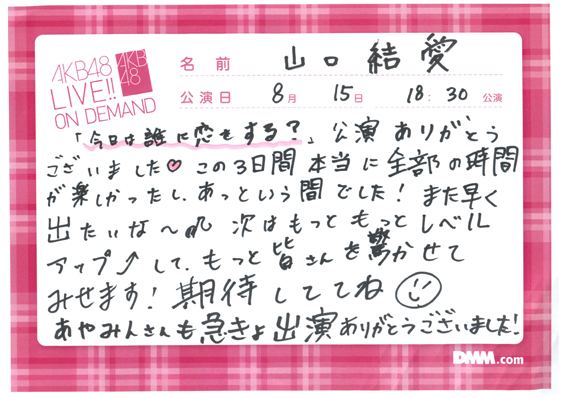 AKB48
LIVE!!
ON DEMAND
AKB
48
名前 山口結愛
公演日 8月 15日 18:30 公演
「今日は誰に恋をする?」公演 ありがとう
ございました♡ この3日間 本当に全部の時間
が楽しかったし、あっという間でした! また早く
出たいな〜♫ 次はもっともっとレベル
アップ⤴して、もっと皆さんを驚かせて
みせます! 期待しててね☺
あやみんさんも急きょ出演ありがとうございました!
DMM.com